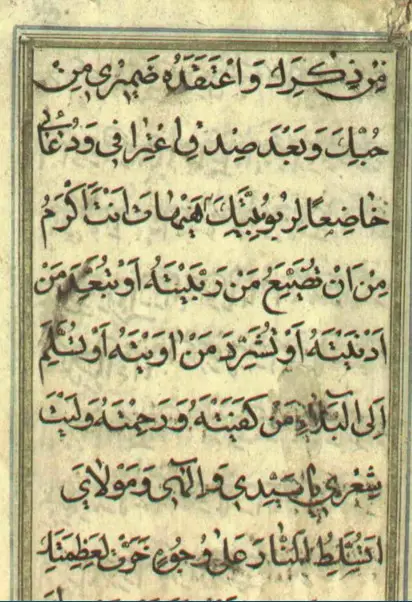 مِنْ ذِكْرِكَ وَاعْتَقَدَهُ ضَمِيرِي مِنْ
حُبِّكَ وَبَعْدَ صِدْقِ اعْتِرَافِي وَدُعَائِي
خَاضِعًا لِرُبُوبِيَّتِكَ هَيْهَاتَ اَنْتَ اَكْرَمُ
مِنْ اَنْ تُضَيِّعَ مَنْ رَبَّيْتَهُ اَوْ تُبَعِّدَ مَنْ
اَدْنَيْتَهُ اَوْ تُشَرِّدَ مَنْ اوَيْتَهُ اَوْ تُسَلِّمَ
اِلَى الْبَلَاءِ مَنْ كَفَيْتَهُ وَرَحِمْتَهُ وَلَيْتَ
شِعْرِي يَا سَيِّدِي وَاِلٰهِي وَمَوْلَايَ
اَتُسَلِّطُ النَّارَ عَلَى وُجُوهٍ خَرَّتْ لِعَظَمَتِكَ